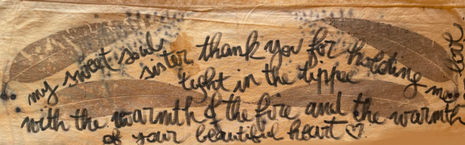 my sweet soul sister thank you for holding me
tight in the tippee
with the warmth of the fire and the warmth
of your beautiful heart ♡